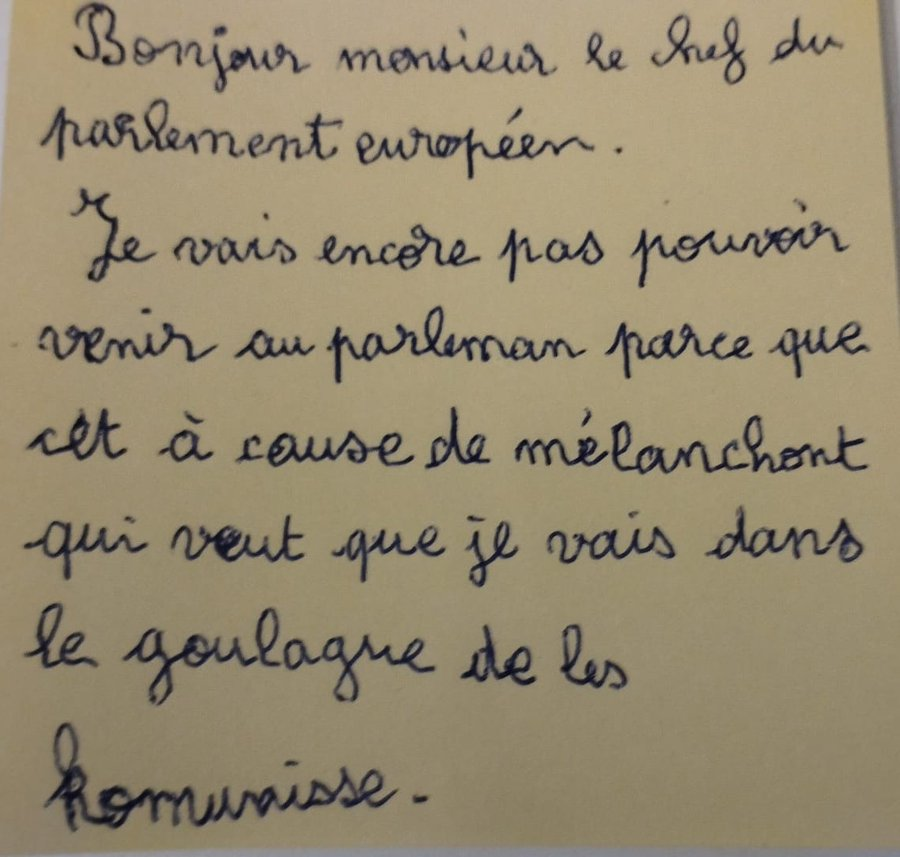 Bonjour monsieur le chef du
parlement européen.
Je vais encore pas pouvoir
venir au parleman parce que
cét à cause de mélanchont
qui veut que je vais dans
le goulague de les
komunisse.